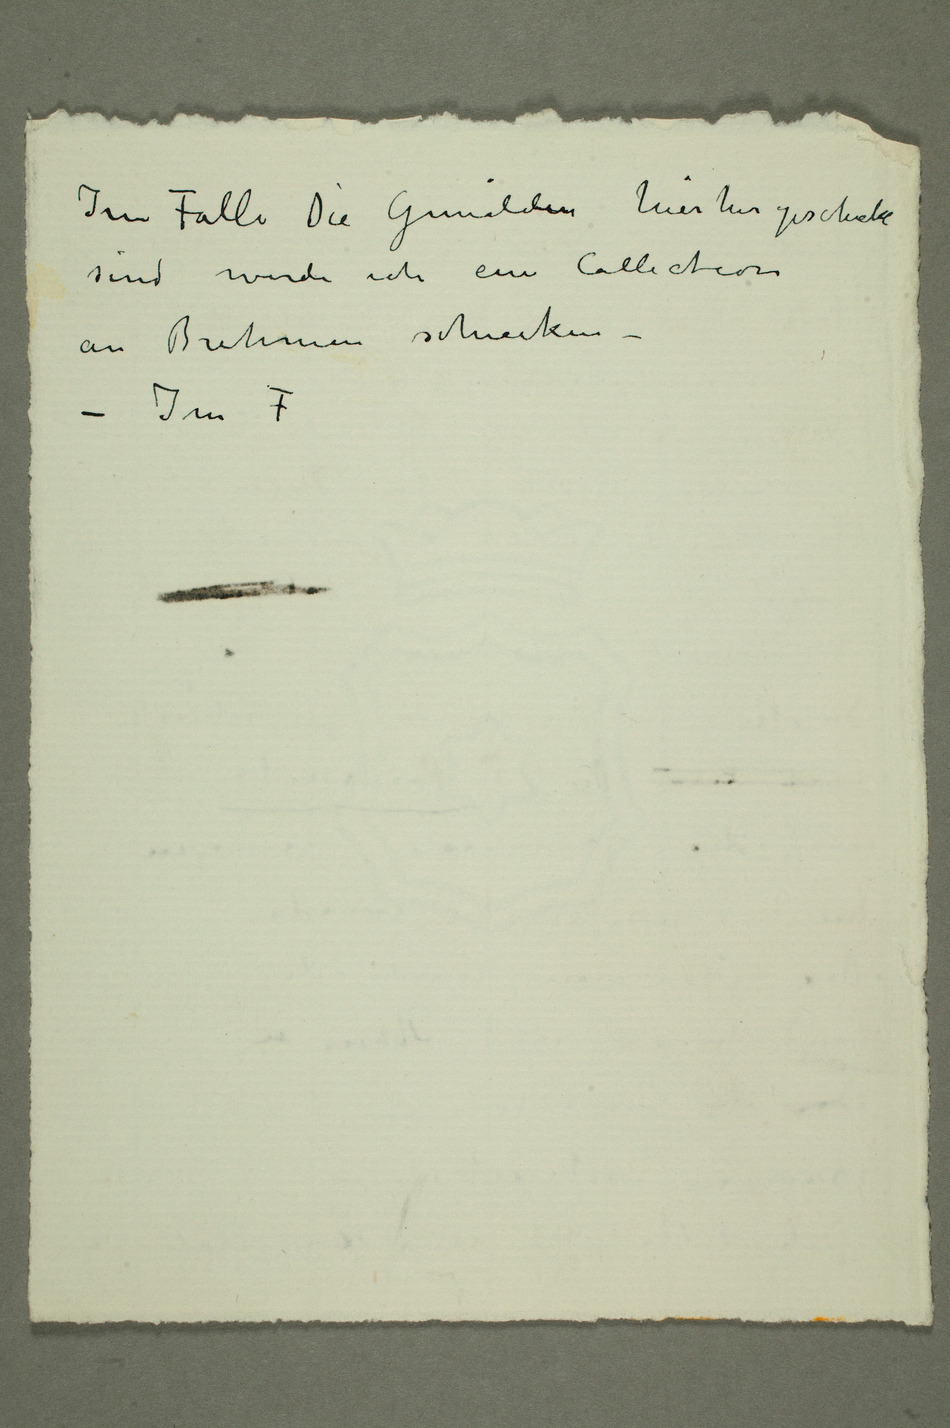 Im Falle Die Gemälden hierher geschickt
sind werde ich ein Collection
an Brehmen schicken –
– Im F